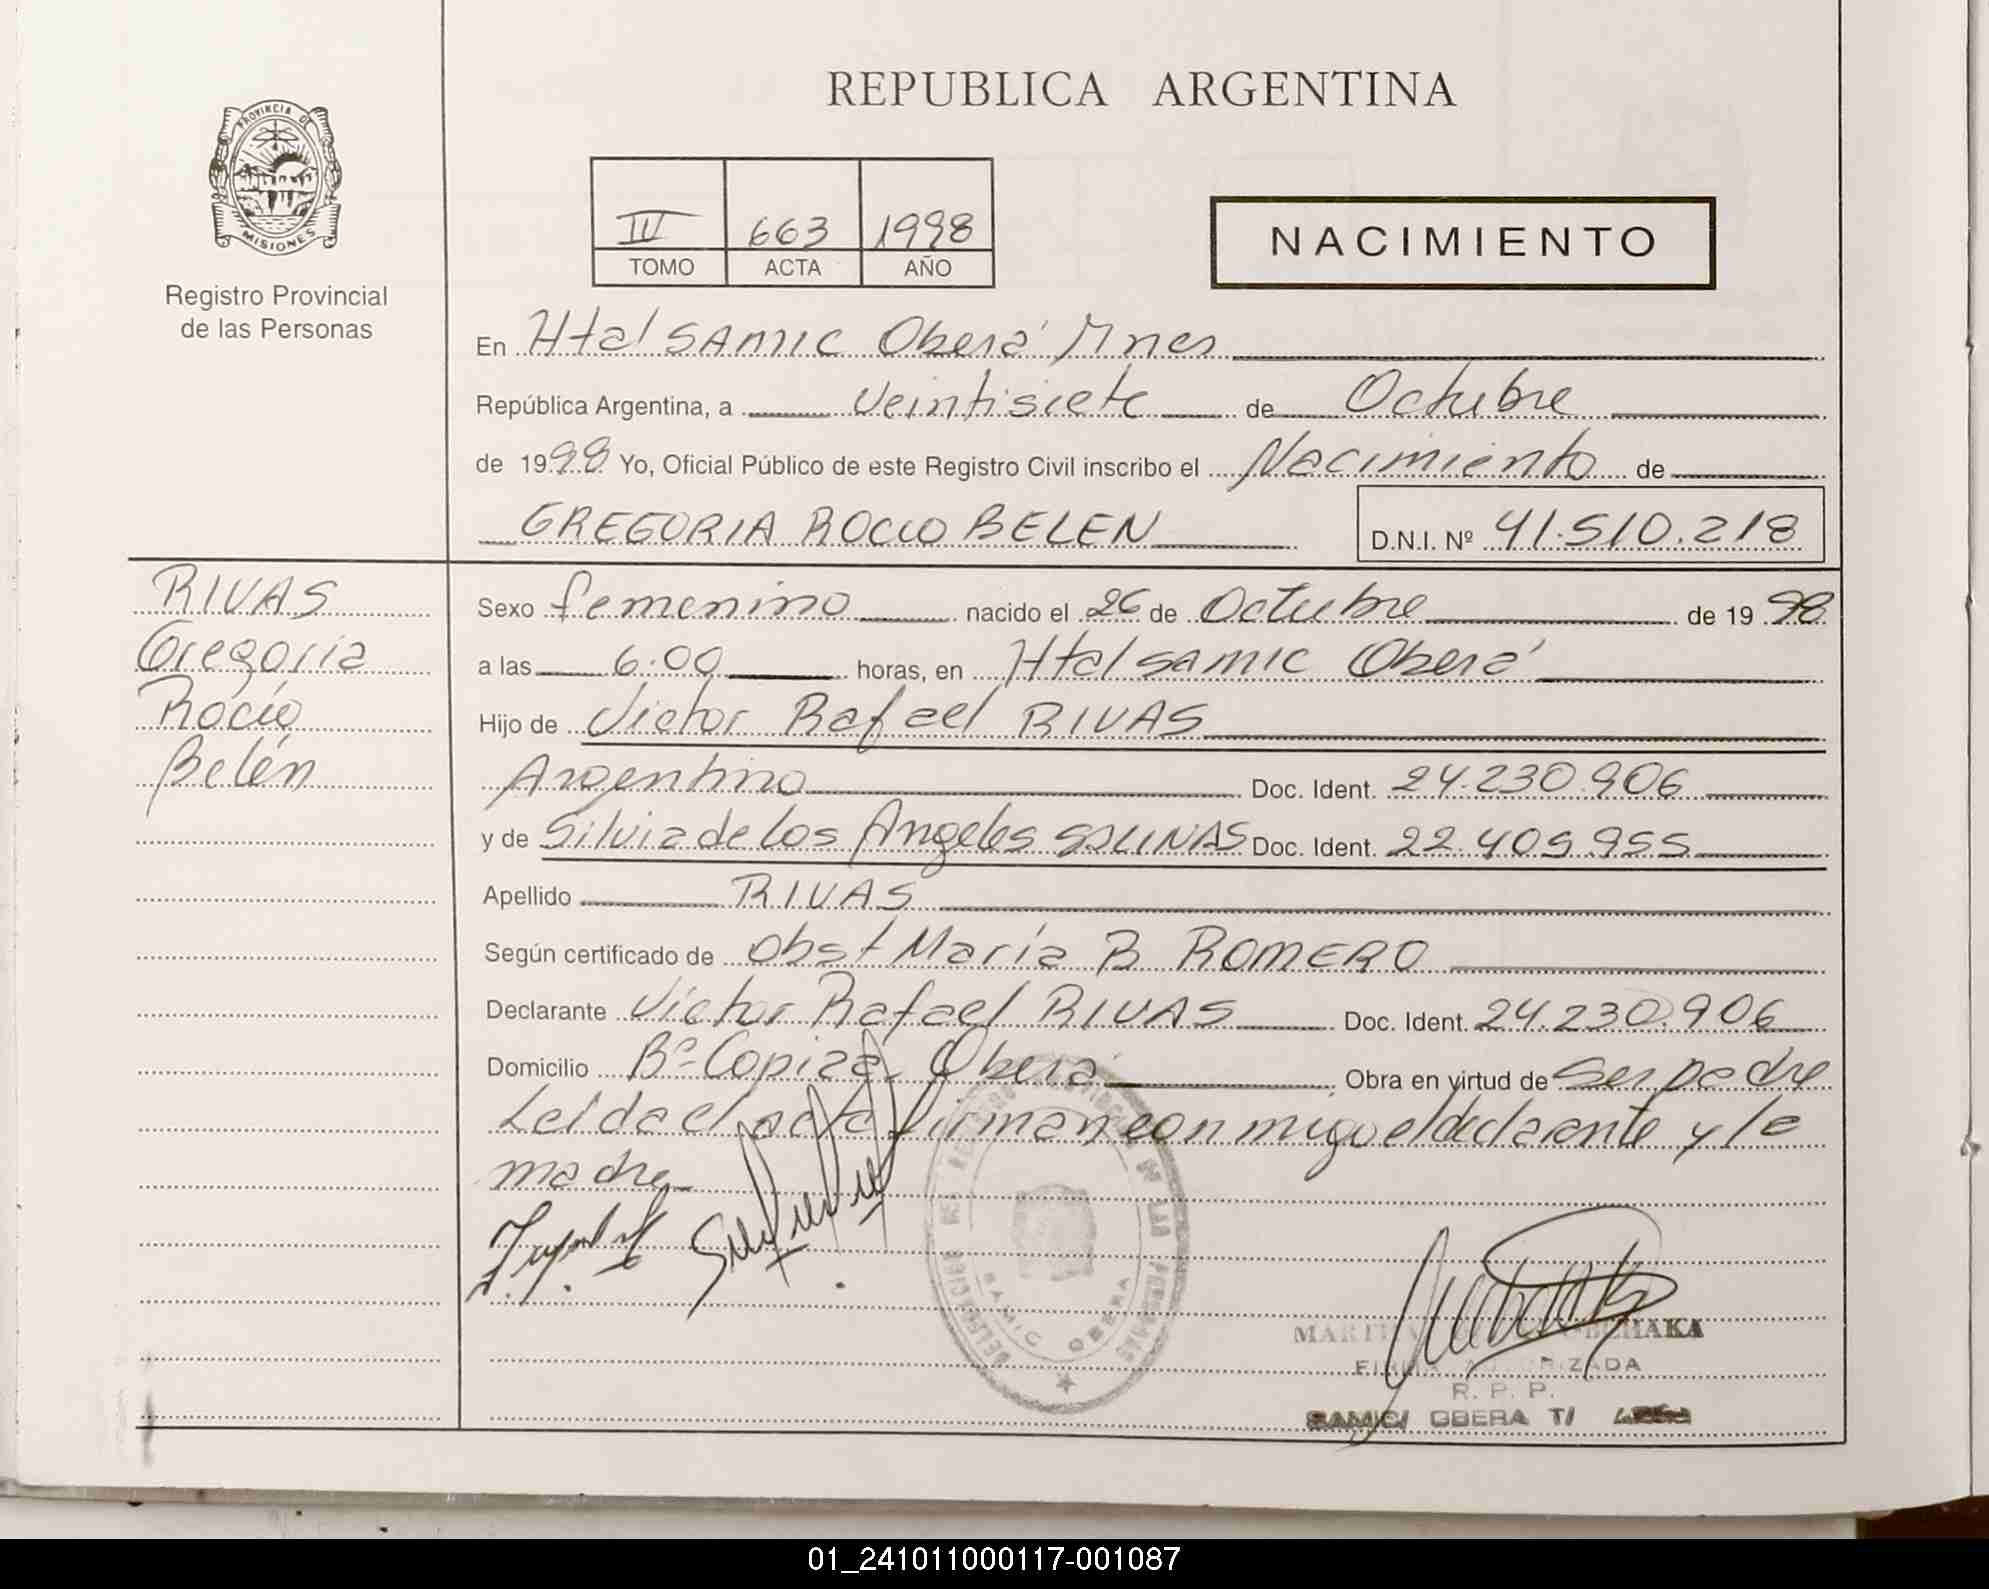 REPUBLICA ARGENTINA
PROVINCIA DE
MISIONES
Registro Provincial
de las Personas
IV 663 1998
TOMO ACTA AÑO
NACIMIENTO
En Htal SAMIC Oberá Mnes
República Argentina, a veintisiete de Octubre
de 1998 Yo, Oficial Público de este Registro Civil inscribo el Nacimiento de
GREGORIA ROCIO BELEN D.N.I. Nº 41.510.218
RIVAS
Gregoria
Rocío
Belén
Sexo femenino nacido el 26 de Octubre de 1998
a las 6:00 horas, en Htal SAMIC Oberá
Hijo de Victor Rafael RIVAS
Argentino Doc. Ident. 24.230.906
y de Silvia de los Angeles SALINAS Doc. Ident. 22.405.955
Apellido RIVAS
Según certificado de Obst María B ROMERO
Declarante Víctor Rafael RIVAS Doc. Ident. 24.230.906
Domicilio Bº Copiza Oberá Obra en virtud de ser padre
Leída el acta firman con migo el declarante y la
madre
SAMIC OBERA
FIRMA AUTORIZADA
R. P. P.
SAMIC/ OBERA T/
01_241011000117-001087